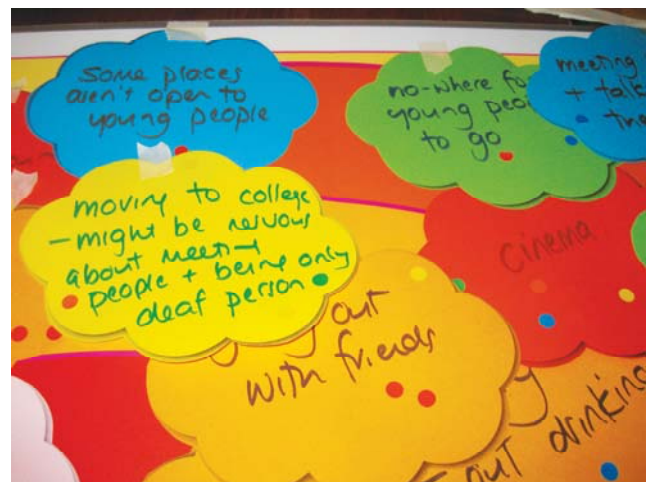 some places
aren't open to
young people
no-where fo
young peo
to go
meeting
+ talk
moving to college
- might be nervous
about meeting
people + being only
deaf person
cinema
out
with friends
out drinking